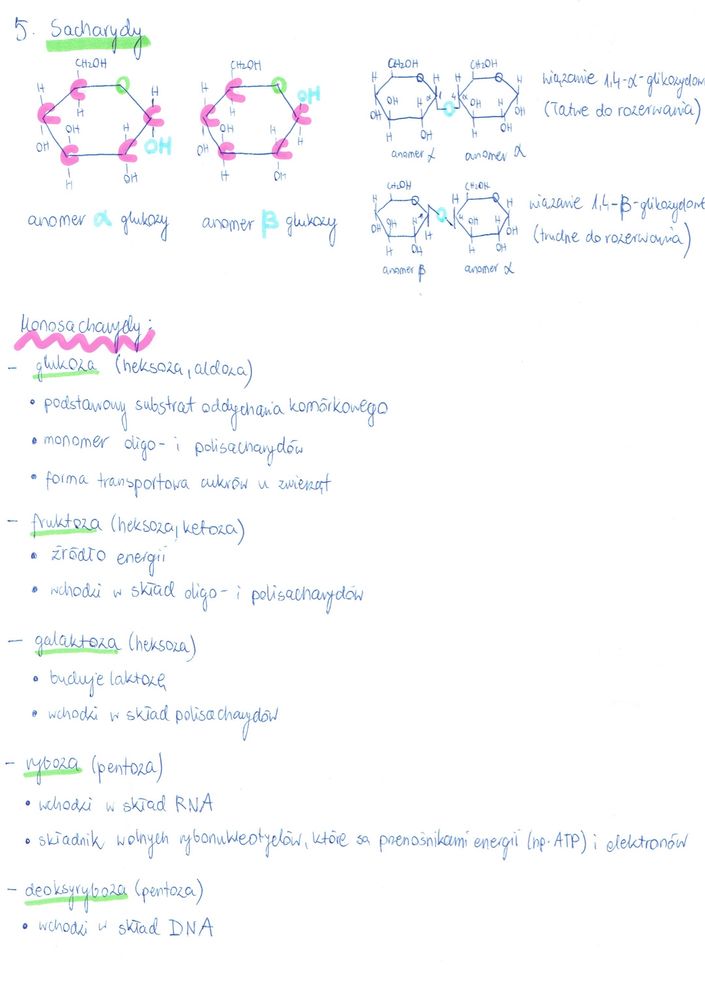 5. Sacharydy
CH₂OH
H
H
H
OH
H
OH
OH
H
OH
anomer α glukozy
CH₂OH
H
OH
H
OH
H
OH
H
H
OH
anomer β glukozy
CH₂OH CH₂OH
H H H H
OH OH OH OH
O
H H
OH OH
anomer α anomer α
wiązanie 1,4-α-glikozydow
(łatwe do rozerwania)
CH₂OH CH₂OH
OH OH OH OH
O
H H H
OH OH
anomer β anomer α
wiązanie 1,4-β-glikozydowe
(trudne do rozerwania)
Monosacharydy:
- glukoza (heksoza, aldoza)
• podstawowy substrat oddychania komórkowego
• monomer oligo- i polisacharydów
• forma transportowa cukrów u zwierząt
- fruktoza (heksoza, ketoza)
• źródło energii
• wchodzi w skład oligo- i polisacharydów
- galaktoza (heksoza)
• buduje laktozę
• wchodzi w skład polisacharydów
- ryboza (pentoza)
• wchodzi w skład RNA
• składnik wolnych rybonukleotydów, które są przenośnikami energii (np. ATP) i elektronów
- deoksyryboza (pentoza)
• wchodzi w skład DNA